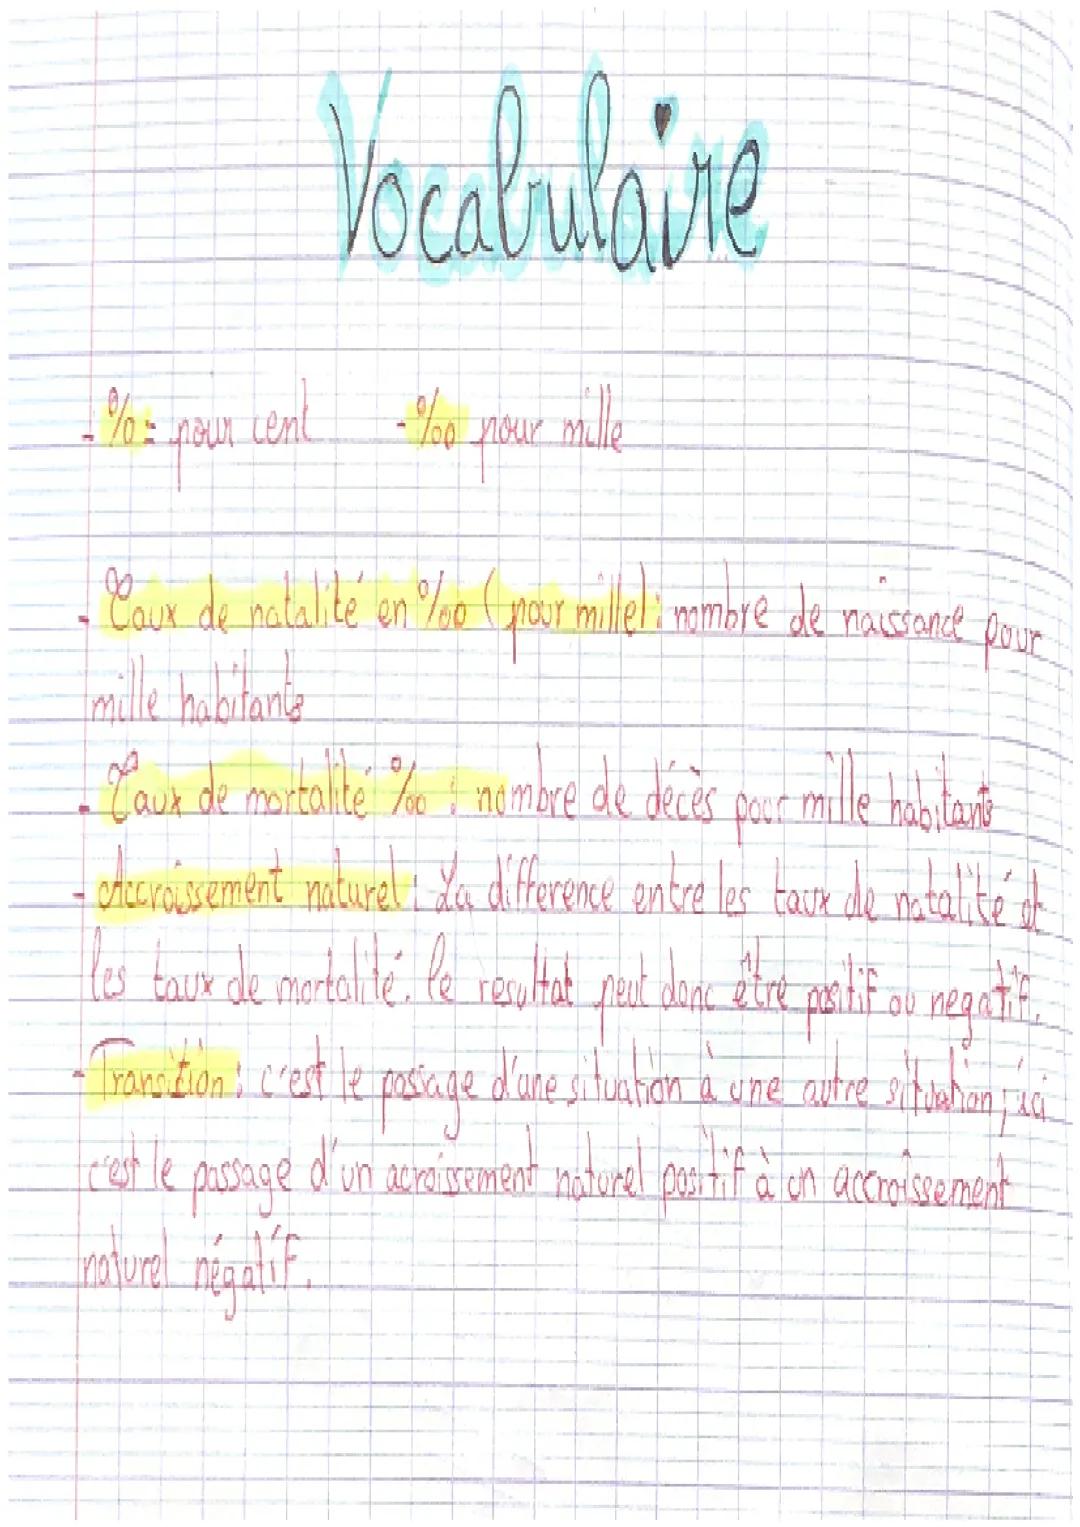 Vocabulaire
- % = pour cent - ‰ pour mille
- Taux de natalité en ‰ (pour mille) : nombre de naissance pour
mille habitants
- Taux de mortalité ‰ : nombre de décès pour mille habitants
- Accroissement naturel : La différence entre les taux de natalité et
les taux de mortalité. le resultat peut donc être positif ou negatif.
- Transition : c'est le passage d'une situation à une autre situation ; ici
c'est le passage d'un acroissement naturel positif à un accroissement
naturel négatif.